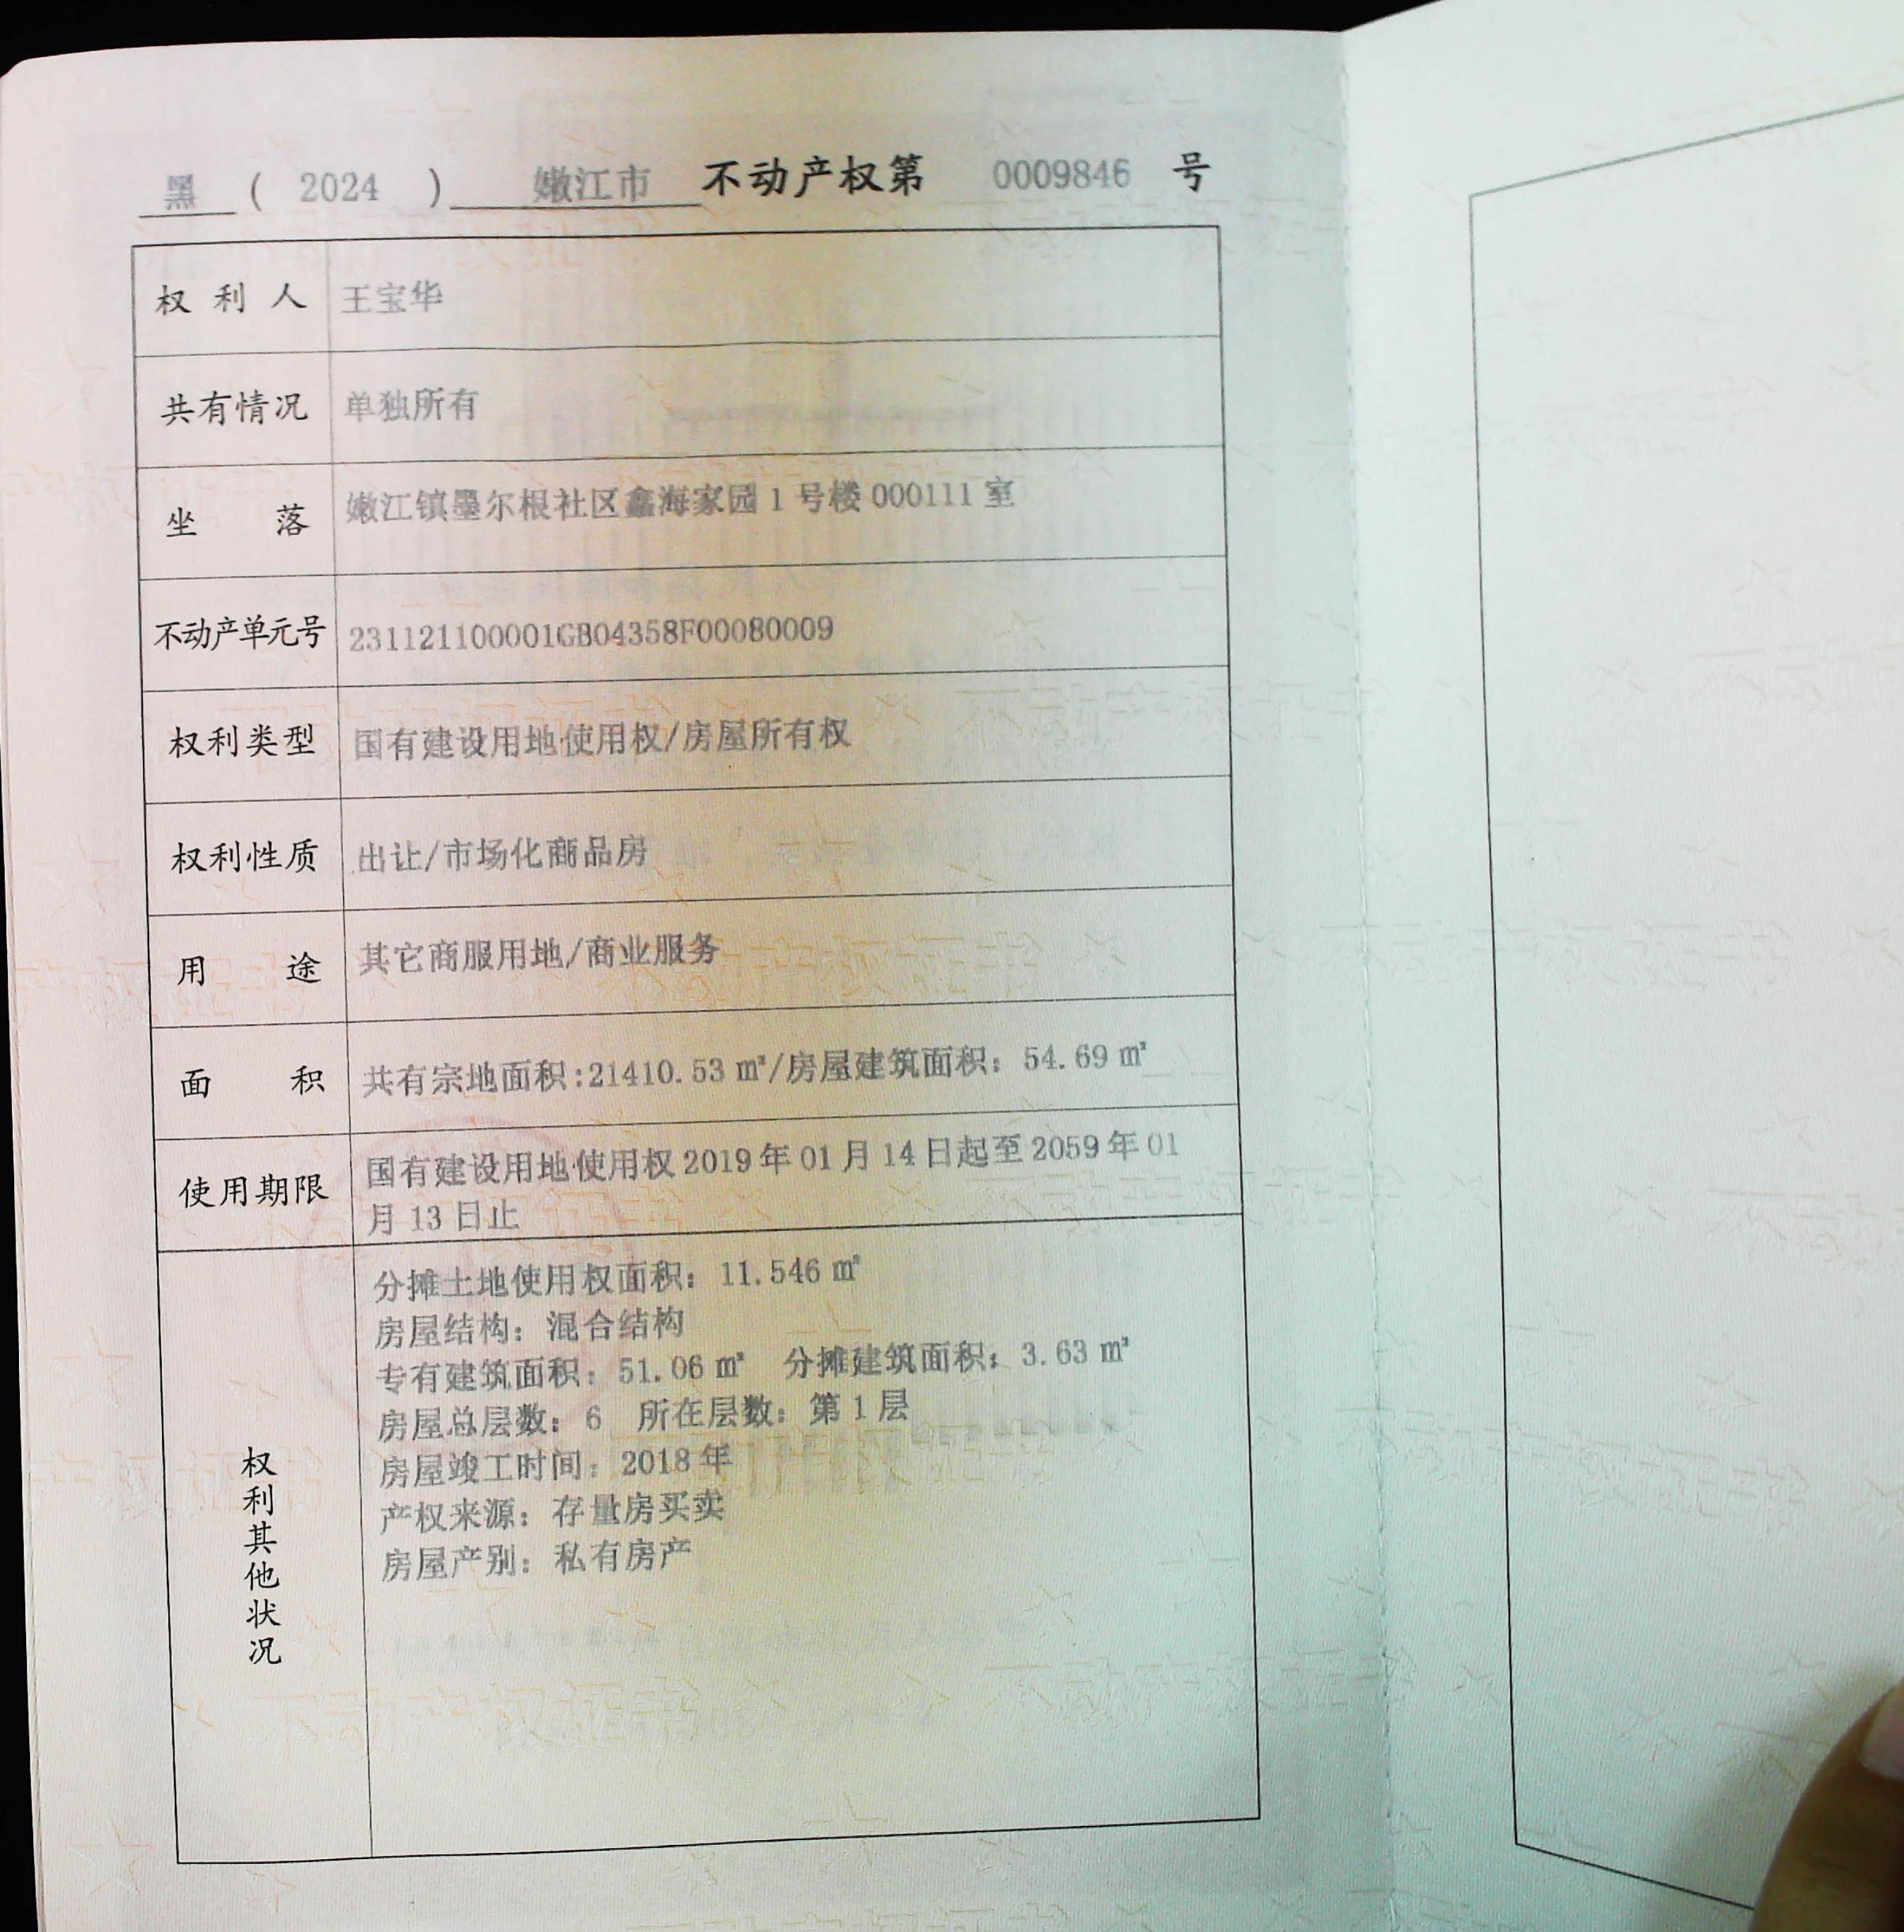 黑 ( 2024 ) 嫩江市 不动产权第 0009846 号
权利人 王宝华
共有情况 单独所有
坐落 嫩江镇墨尔根社区鑫海家园1号楼000111室
不动产单元号 231121100001GB04358F00080009
权利类型 国有建设用地使用权/房屋所有权
权利性质 出让/市场化商品房
用途 其它商服用地/商业服务
面积 共有宗地面积:21410.53㎡/房屋建筑面积：54.69㎡
使用期限 国有建设用地使用权2019年01月14日起至2059年01
月13日止
权利其他状况
分摊土地使用权面积：11.546㎡
房屋结构：混合结构
专有建筑面积：51.06㎡ 分摊建筑面积：3.63㎡
房屋总层数：6 所在层数：第1层
房屋竣工时间：2018年
产权来源：存量房买卖
房屋产别：私有房产